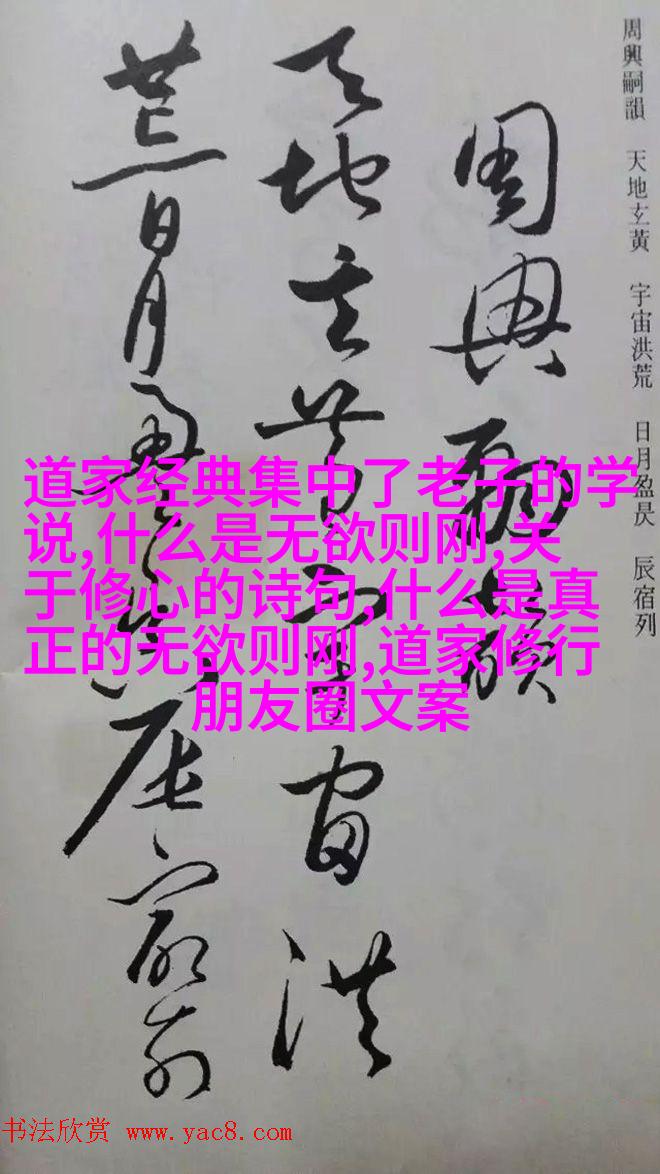 周興嗣韻 天地玄黃 宇宙洪荒 日月盈昃 辰宿列
周興嗣韻
天地玄黃宇宙洪
荒日月盈昃辰宿列
道家经典集中了老子的学
说,什么是无欲则刚,关
于修心的诗句,什么是真
正的无欲则刚,道家修行
朋友圈文案
书法欣赏 www.yac8.com